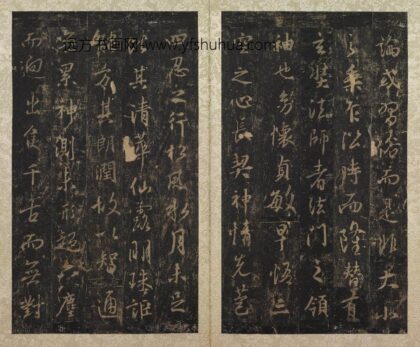 远方书画网-www.yfshuhua.com
論或習俗而是非大小
之乘乍沿時而隆替有
玄奘法師者法門之領
袖也幼懷貞敏早悟三
空之心長契神情先苞
四忍之行松風水月未足
比其清華仙露明珠詎
能方其朗潤故以智通
無累神測未形超六塵
而迥出隻千古而無對